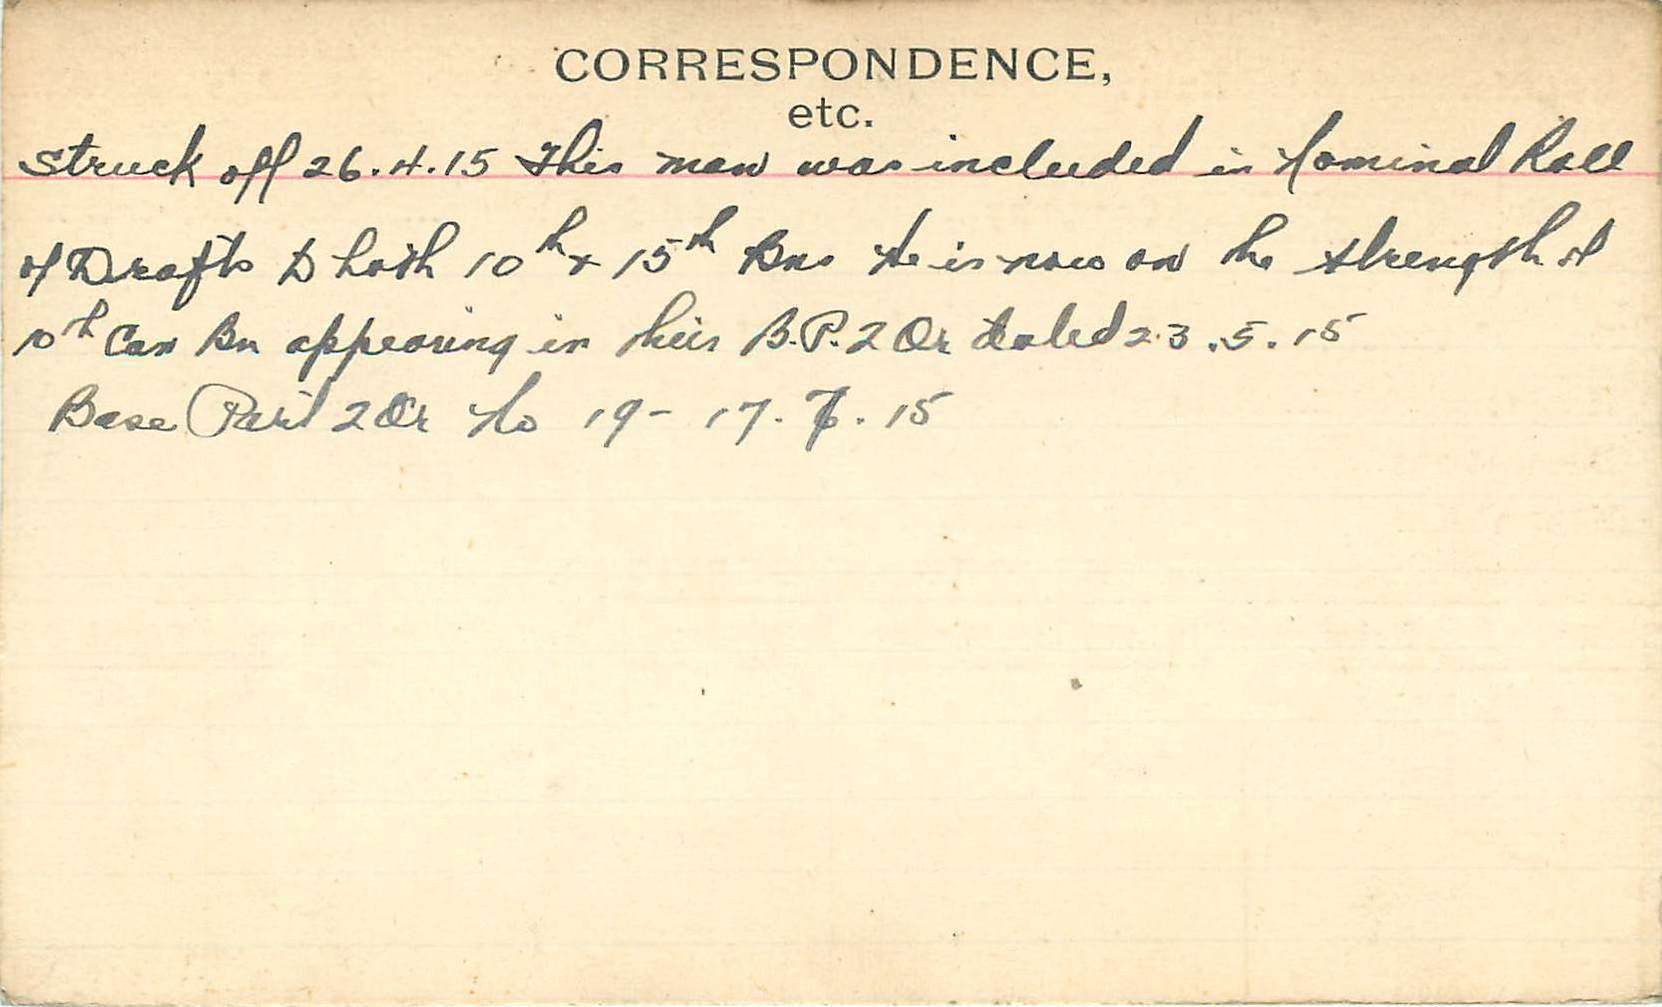 CORRESPONDENCE,
etc.
Struck off 26.4.15 This man was included in Nominal Roll
of Drafts to both 10th & 15th Bns He is now on the strength of
10th Can Bn appearing in their B.P. 2 Or dated 23.5.15
Base Part 2 Or No 19- 17. . 15